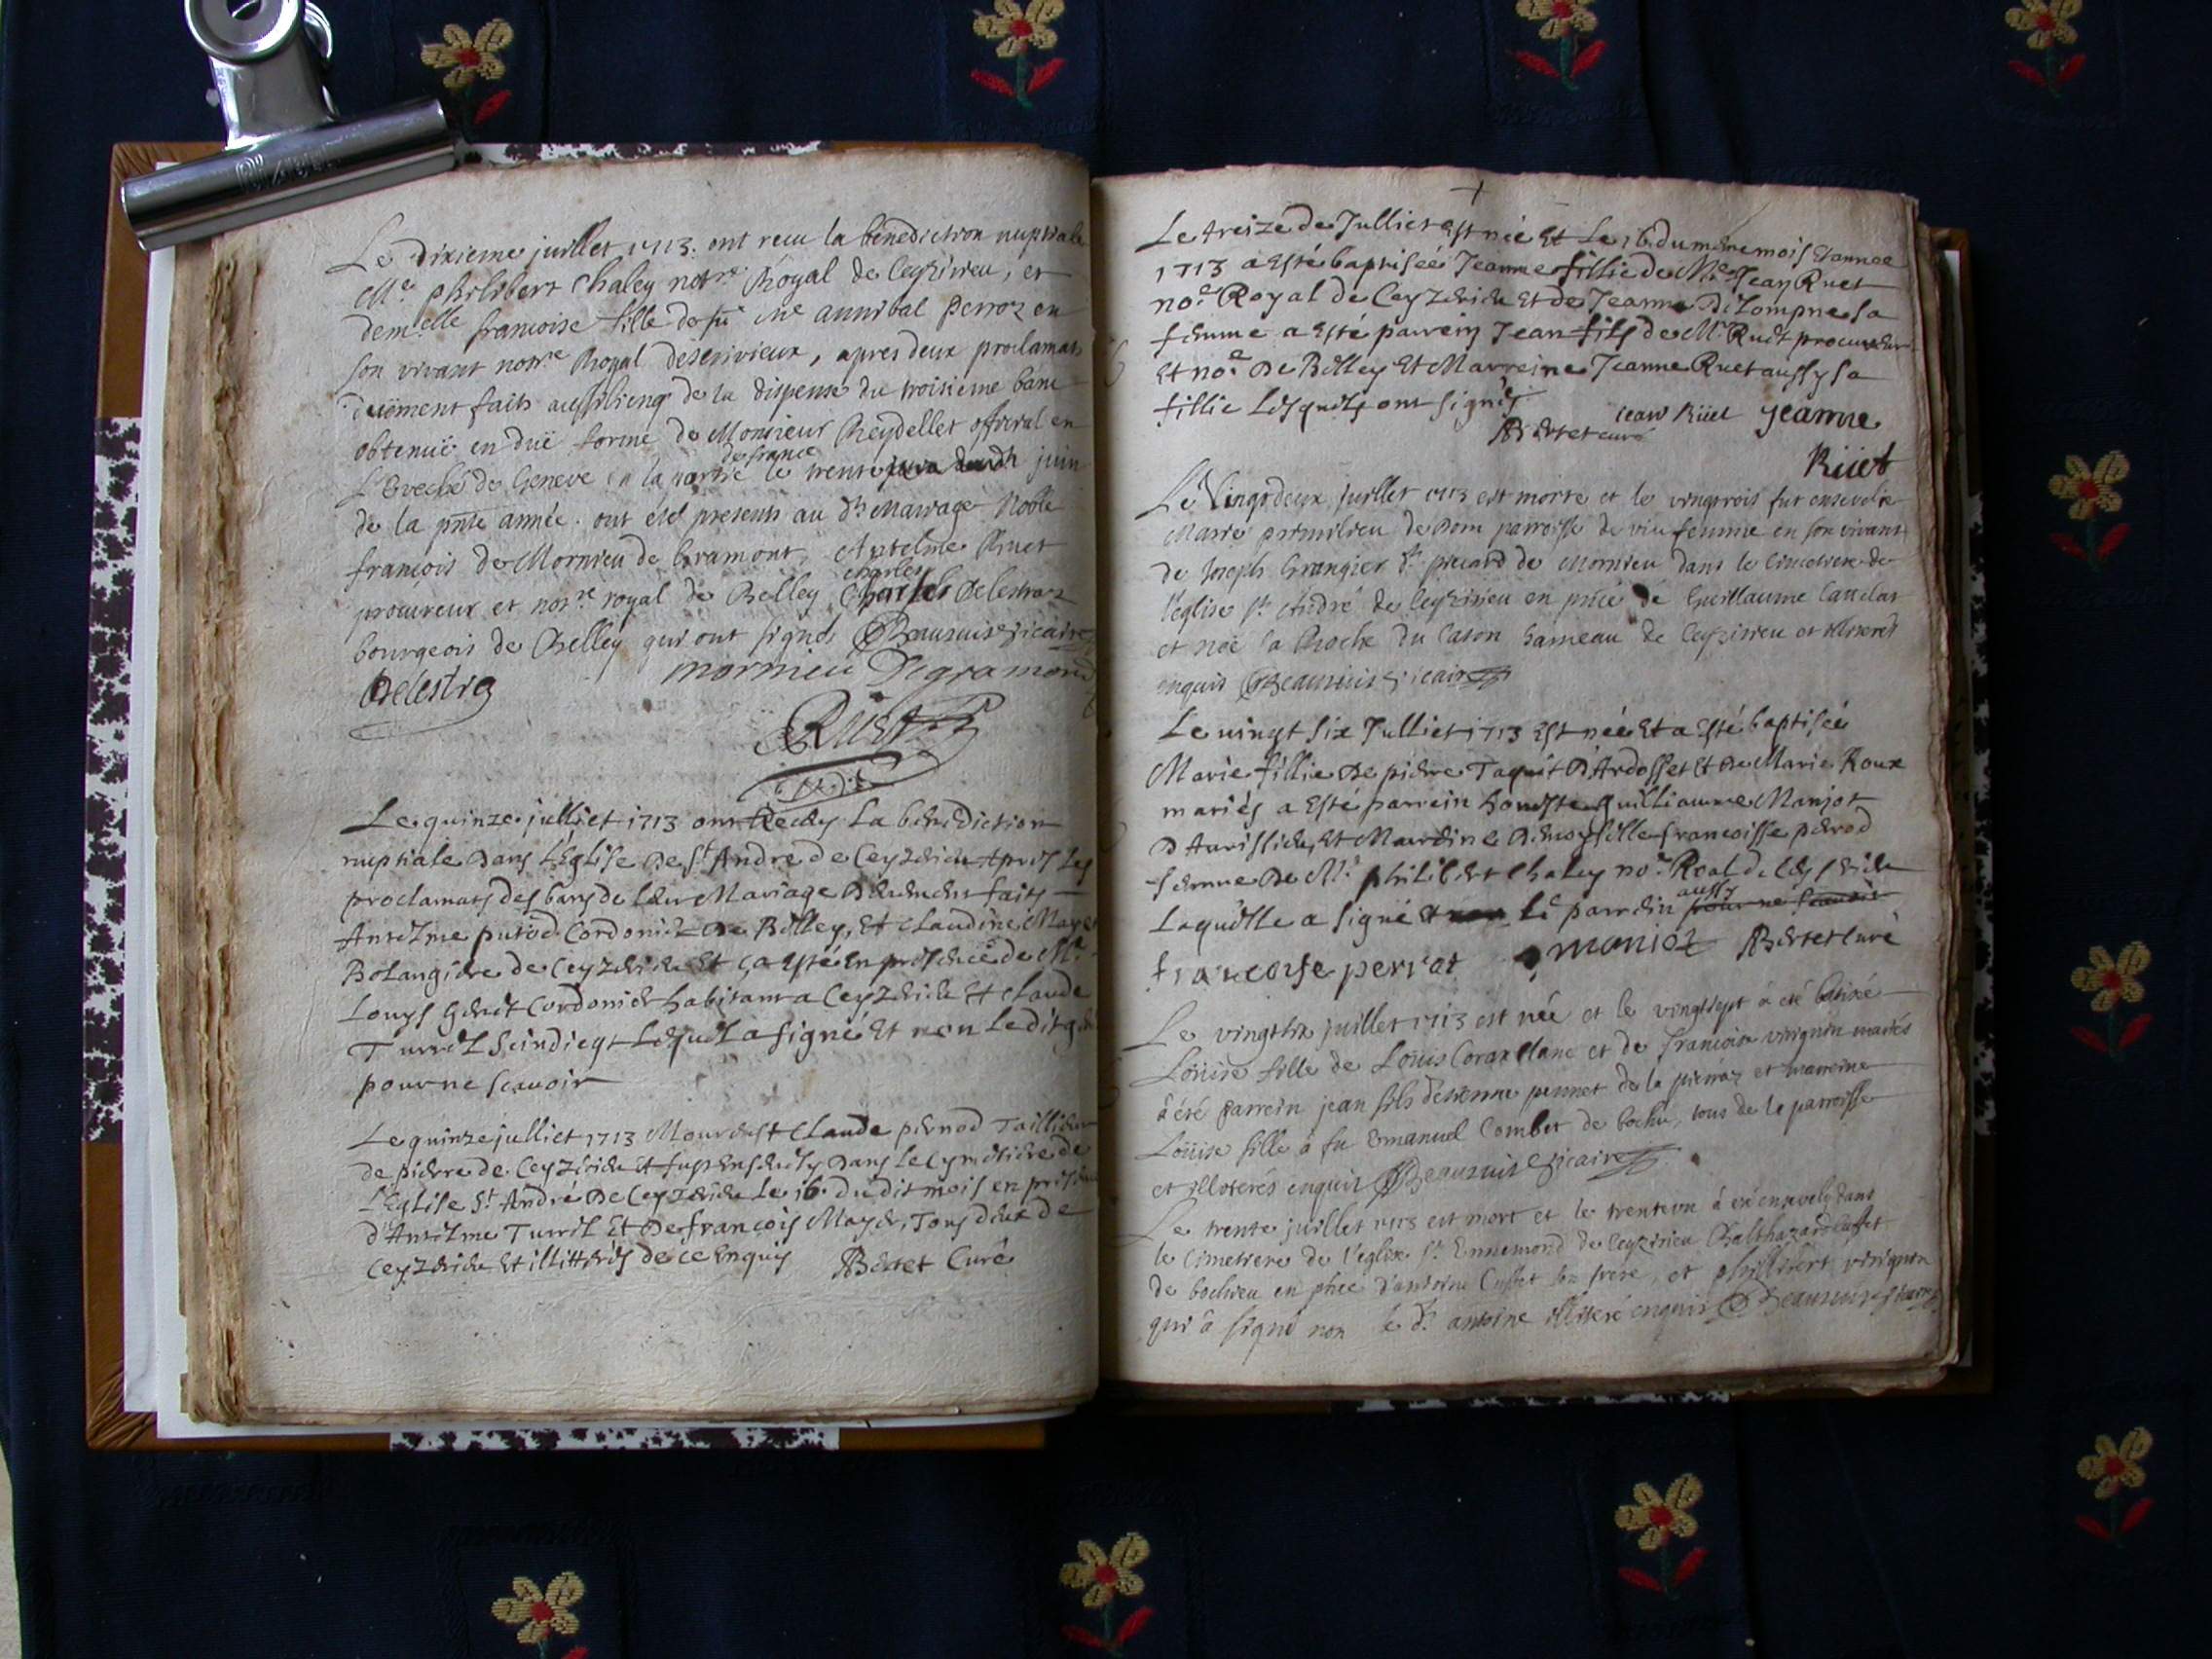 Le dixieme juillet 1713. ont recu la benediction nuptiale
Me. philibert Chaley notre. Royal de Ceyzirieu, et
demelle francoise fille de fû Me annibal Perroz en
son vivant notre Royal , apres deux proclamats
duëment faits de la dispense du troisieme banc
obtenuë en duë forme de Monsieur Reydellet official en
de france
L'Eveché de Geneve a la partie le trente juin
de la pnte année. ont eté presents au dt Mariage Noble
francois de Mornieu de Gramont, Antelme Ruet
charles
procureur et notre royal de Belley Charles Delestraz
bourgeois de Belley qui ont signés Beausuis vicaire
mornieu Degramont
Delestra
Ruet
Le quinze julliet 1713 ont Receu La benediction
nuptiale Dans L'Eglise De St Andre de Ceyzerieu Apres Les
proclamats des bans de leur Mariage Deuement faits
Antelme putod Cordonier De Belley, Et Claudine Mayet
Bolangere de Ceyzerieu Et ça Esté En presence de Mr
Louys Genet Cordonier habitant a Ceyzerieu Et Claude
Turrel Scindicqt Lequel a signé Et non Ledit
pour ne scavoir
Le quinze julliet 1713 Mourust Claude pernod Taillieur
de pierre de Ceyzerieu Et fust Ensevely Dans Le Cymetiere de
L'Eglise St André De Ceyzerieu Le 16. du dit mois en presence
d'Antelme Turril Et De francois Mayet, Tous deux de
Ceyzerieu Et illitterés de ce Enquis Bertet Curé
Le treize de Julliet Est née Et Le 16. du meme mois Et annee
1713 a Esté baptisée Jeanne fillie de Me Jean Ruet
noe. Royal de Ceyzerieu Et de Jeanne DeLompnes sa
femme a Esté parrein Jean fils de Mr Ruet procureur
Et noe. De Belley Et Marreine Jeanne Ruet aussy sa
fillie Lesquels ont signés
Bertet curé Jean Rüet Jeanne
Rüet
Le Vingtdeux juillet 1713 est morte et le vingtrois fut ensevelie
Marie de Dom parroisse de vieu femme en son vivant
de Joseph Grangier dt picard de Mornieu dans le Cimetiere de
l'eglise st André de Ceyzirieu en pnce de Guillaume
et noë la Roche du Cason hameau de Ceyzirieu et illiterés
enquis Beausuis vicaire
Le vingt six Julliet 1713 Est née Et a Esté baptisée
Marie fillie De pierre Taquet D'Ardosset Et De Marie Roux
mariés a Esté parrein honeste Guilliaume Manjot
D'Avrissieu, Et Marreine Demoyselle francoisse perod
femme De Mr. philibert Chaley noe. Roal de Ceyserieu
aussy
Laquelle a signé Le parrein pour ne scavoir
francoise perrot moniot Bertet Curé
Le vingtsix juillet 1713 est née et le vingtsept à été batisée
Loüise fille de Loüis et de francoise mariés
à été parrein jean fils d'etienne pennet de la pierraz et marreine
Loüise fille à fu Emanuel Combet de bochu, tous de la parroisse
et illiterés enquis Beausuis vicaire
Le trente juillet 1713 est mort et le trenteun à eté enseveli dans
le Cimetiere de l'eglise st. Ennemond de Ceyzirieu Balthazard Cuffet
de bochieu en pnce d'antoine Cuffet son frere, et philibert
qui à signé non le dt antoine illiteré enquis Beausuis vicaire